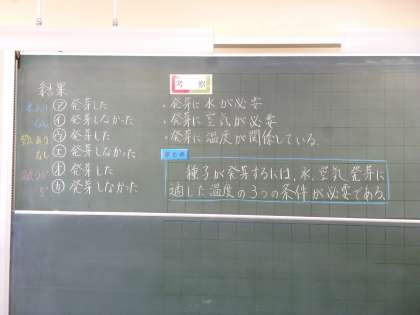 結果
水あり ㋐ 発芽した
なし ㋑ 発芽しなかった
空気あり ㋒ 発芽した
なし ㋓ 発芽しなかった
㋔ 発芽した
5° ㋕ 発芽しなかった
考察
・発芽に水が必要
・発芽に空気が必要
・発芽に温度が関係している。
まとめ
種子が発芽するには、水、空気、発芽に
適した温度の3つの条件が必要である。